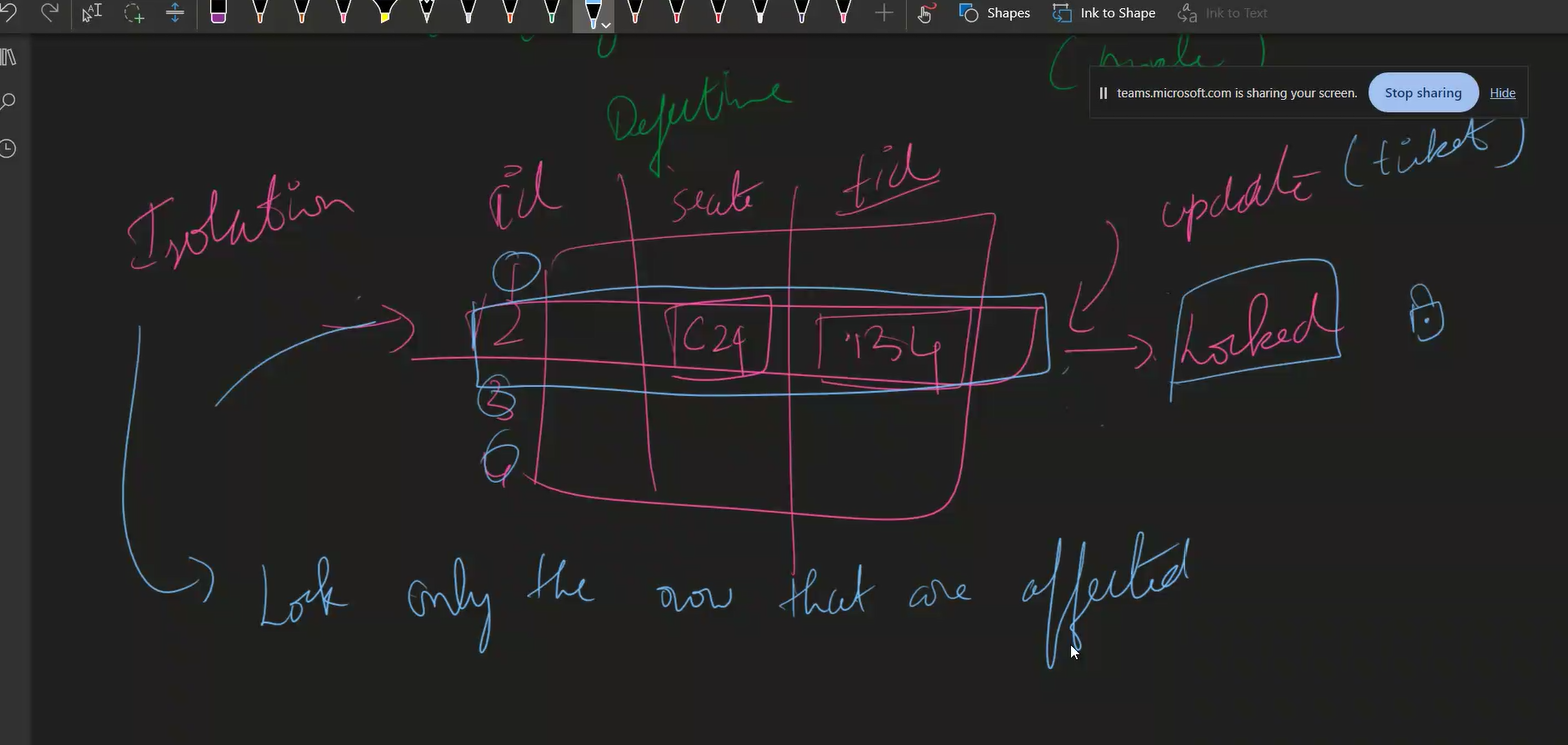 Shapes Ink to Shape Ink to Text
teams.microsoft.com is sharing your screen. Stop sharing Hide
Defective
(ticket)
update
Isolation id seat tid
1
2 C24 134 Locked
3
4
Lock only the row that are affected